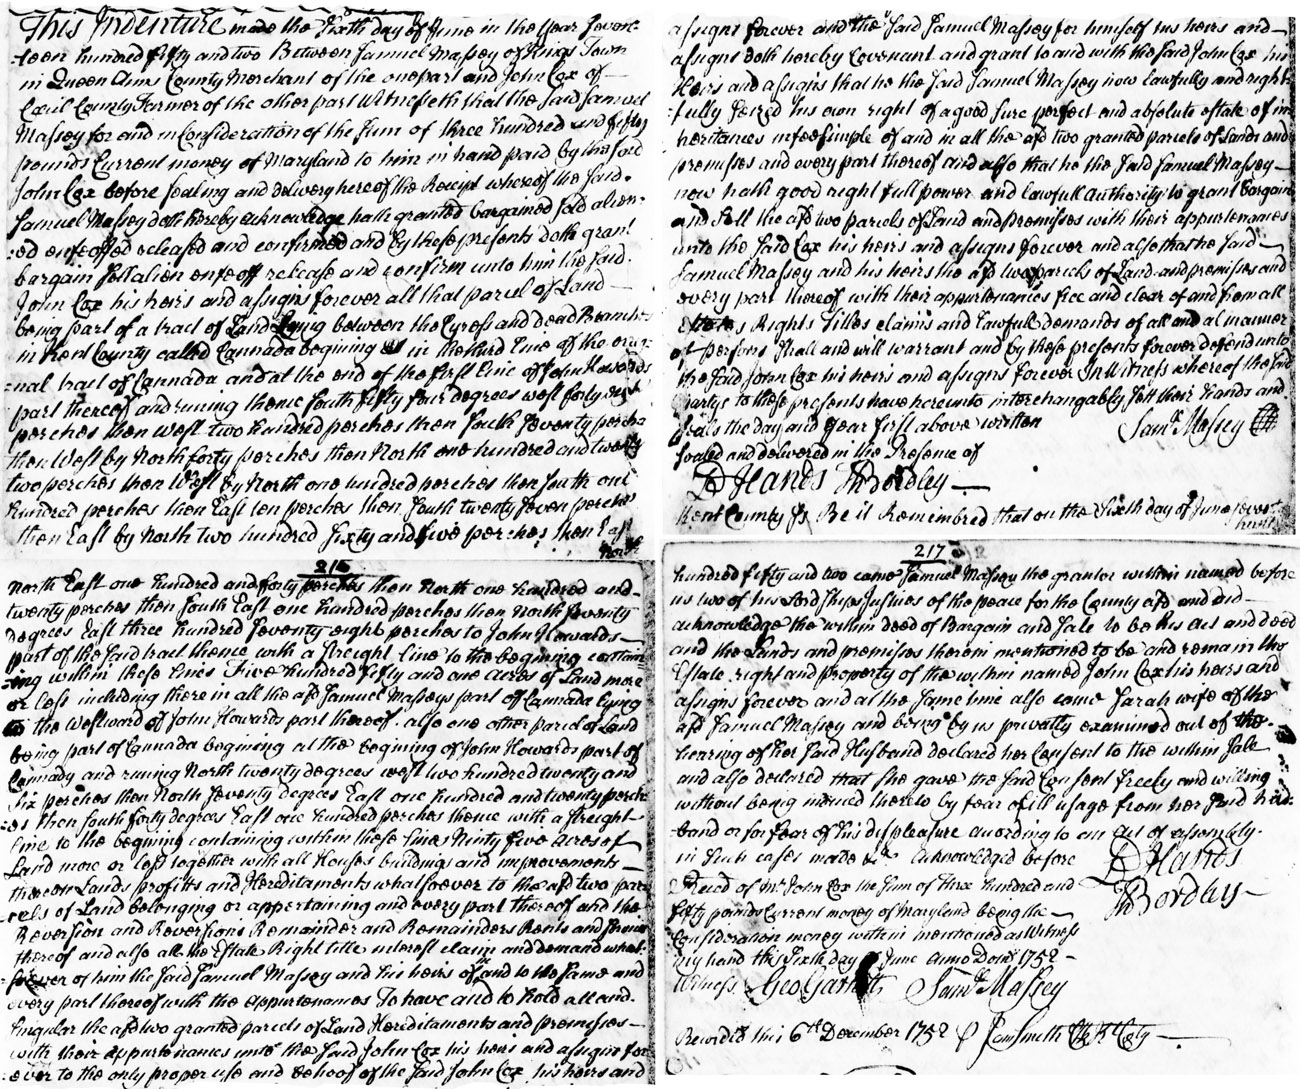 This Indenture made the Sixth day of June in the Year Seven-
-teen hundred fifty and two Between Samuel Massey of Kings Town
in Queen Anns County Merchant of the one part and John Cox of
Cecil County Farmer of the other part Witnesseth that the said Samuel
Massey for and in Consideration of the sum of three hundred and fifty
pounds Current money of Maryland to him in hand paid by the said
John Cox before sealing and delivery hereof the Receipt whereof the said
Samuel Massey doth hereby acknowledge hath granted bargained sold alien-
-ed enfeoffed released and confirmed and by these presents doth grant
bargain sell alien enfeoff release and confirm unto him the said
John Cox his heirs and assigns forever all that parcel of Land
being part of a tract of Land Lying between the Cypress and Dead Branches
in Kent County called Cannada begining in the third line of the orig-
-nal tract of Cannada and at the end of the first line of John Howards
part thereof and runing thence South fifty four degrees west forty
perches then West two hundred perches then South Seventy perches
then West by North forty perches then North one hundred and twenty
two perches then West by North one hundred perches then South one
hundred perches then East ten perches then South twenty seven perches
then East by North two hundred Sixty and five perches then East
North
216
North East one hundred and forty perches then North one hundred and
twenty perches then South East one hundred perches then North Seventy
degrees East three hundred seventy eight perches to John Howards
part of the said tract thence with a streight line to the begining contain
-ing within these lines Five hundred fifty and one acres of Land more
or less including there in all the afd Samuel Masseys part of Cannada lying
to the Westward of John Howards part thereof. also one other parcel of Land
being part of Cannada begining at the begining of John Howards part of
Cannady and runing North twenty degrees west two hundred twenty and
six perches then North Seventy degrees East one hundred and twenty perch
-es then South forty degrees East one hundred perches thence with a streight
line to the begining containing within these lines Ninty five acres of
Land more or less together with all Houses buildings and improvements
thereon Lands profitts and Hereditaments whatsoever to the afd two par
-cels of Land belonging or appertaining and every part thereof and the
Reversion and Reversions Remainder and Remainders Rents and
thereof and also all the Estate Right title interest claim and demand what-
soever of him the said Samuel Massey and his heirs of in and to the same and
every part thereof with the appurtenances To have and to hold all and
singular the afd two granted parcels of Land Hereditaments and premisses
with their appurtenances unto the said John Cox his heirs and assigns for
ever to the only proper use and behoof of the said John Cox his heirs and
assigns forever and the said Samuel Massey for himself his heirs and
assigns doth hereby Covenant and grant to and with the said John Cox his
Heirs and assigns that he the said Samuel Massey now lawfully and right-
-fully seized his own right of a good sure perfect and absolute estate of in
heritances in fee simple of and in all the afd two granted parcels of Lands and
premisses and every part thereof and also that he the said Samuel Massey
now hath good right full power and lawfull authority to grant bargain
and sell the afd two parcels of Land and premisses with their appurtenances
unto the said Cox his heirs and assigns forever and also that he said
Samuel Massey and his heirs the afd two parcels of Land and premisses and
every part thereof with their appurtenances free and clear of and from all
Rights Titles claims and lawfull demands of all and al manner
of persons shall and will warrant and by these presents forever defend unto
the said John Cox his heirs and assigns forever In Witness whereof the said
partys to these presents have hereunto interchangably sett their hands and
seals the day and year first above written Saml Massey
Sealed and delivered in the Presence of
D Hands Th Bordley
Kent County Ss Be it Remembred that on the Sixth day of June seven
217
hundred fifty and two came Samuel Massey the grantor within named before
us two of his Lordships Justices of the peace for the County afd and did
acknowledge the within deed of Bargain and sale to be his act and deed
and the Lands and premisses therein mentioned to be and remain the
Estate right and property of the within named John Cox his heirs and
assigns forever and at the same time also came Sarah wife of the
afd Samuel Massey and being by us privatly examined out of the
hearing of her said Husband declared her Consent to the within sale
and also declared that she gave the said Consent freely and willing
without being induced thereto by fear of ill usage from her said hus-
band or for fear of his displeasure according to an act of assembly
in such cases made &c Acknowledged before D Hands
Th Bordley
Receivd of Mr John Cox the sum of Three hundred and
fifty pounds Current money of Maryland being the
Consideration money within mentioned as Witness
my hand this Sixth day June Anno Domi 1752
Witness Geo Garnett Saml Massey
Recorded this 6th December 1752 P Jas Smith Clk Kt Cty